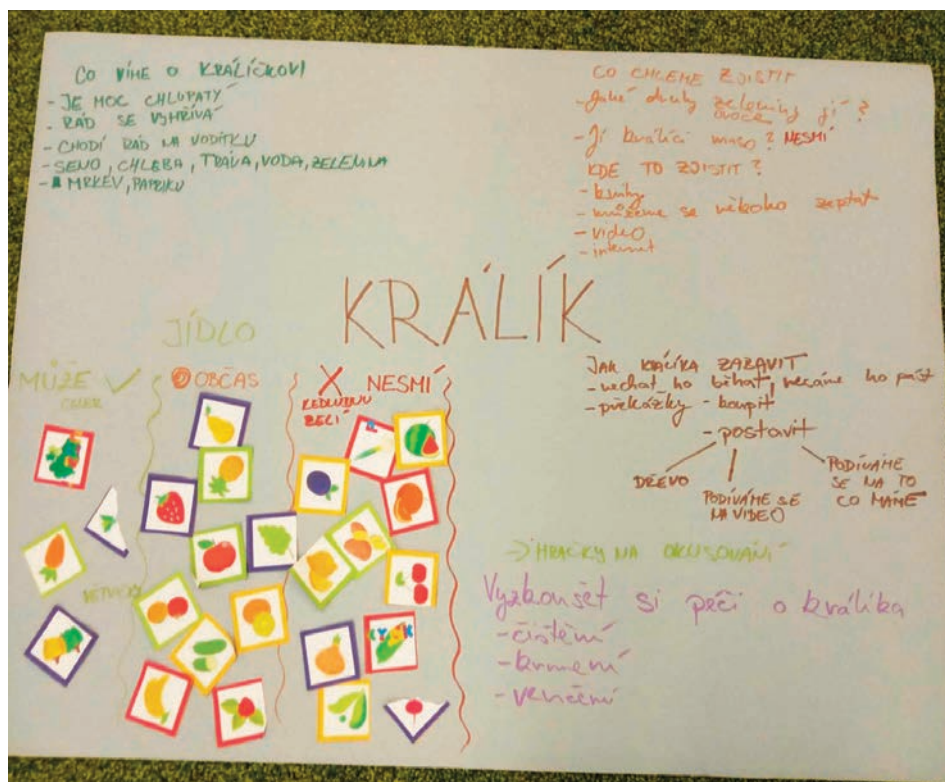 CO VÍME O KRÁLÍČKOVI
- JE MOC CHLUPATÝ
- RÁD SE VYHŘÍVÁ
- CHODÍ RÁD NA VODÍTKU
- SENO, CHLEBA, TRÁVA, VODA, ZELENINA
- MRKEV, PAPRIKU
CO CHCEME ZJISTIT
- Jaké druhy zeleniny jí ?
ovoce
- Jí králíci maso ? NESMÍ
KDE TO ZJISTIT ?
- knihy
- můžeme se někoho zeptat
- video
- internet
KRÁLÍK
JÍDLO
MŮŽE ✓
OBČAS
X NESMÍ
KEDLUBNU
ZELÍ
VĚTVIČKY
JAK KRÁLÍKA ZABAVIT
- nechat ho běhat, necháme ho pást
- překážky - koupit
- postavit
DŘEVO
PODÍVÁME SE
NA VIDEO
PODÍVÁME
SE NA TO
CO MÁME
→ HRAČKY NA OKUSOVÁNÍ
Vyzkoušet si péči o králíka
- čištění
- krmení
- venčení